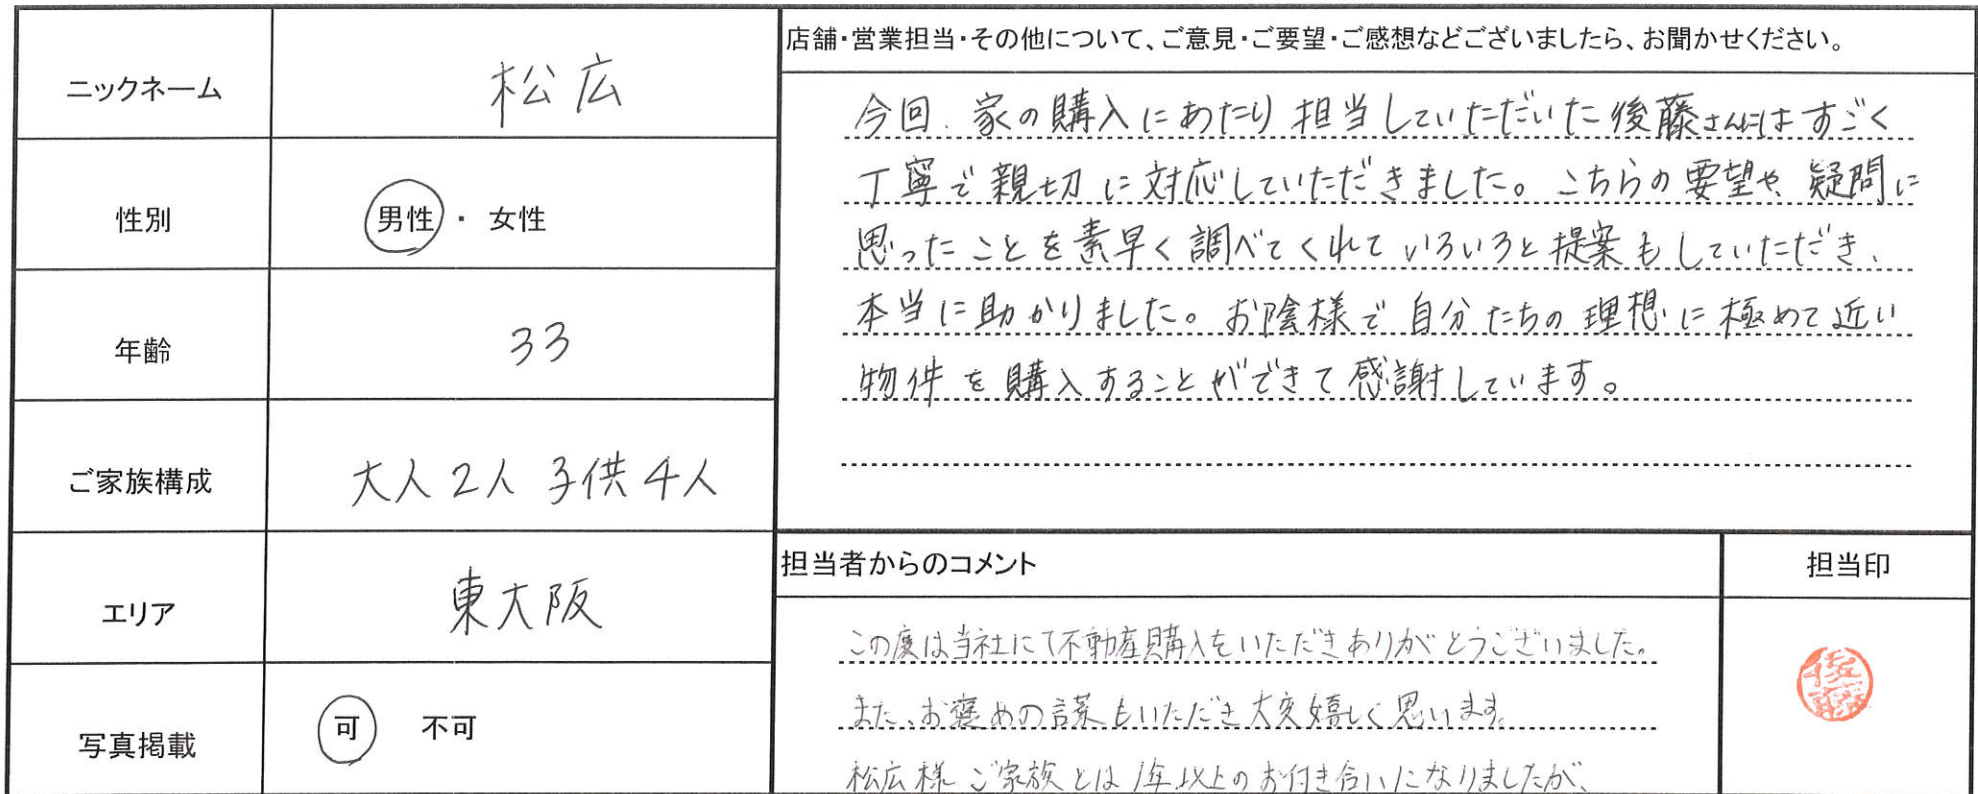 ニックネーム 松広
性別 男性・女性
年齢 33
ご家族構成 大人2人 子供4人
エリア 東大阪
写真掲載 可 不可
店舗・営業担当・その他について、ご意見・ご要望・ご感想などございましたら、お聞かせください。
今回、家の購入にあたり担当していただいた後藤さんにはすごく
丁寧で親切に対応していただきました。こちらの要望や、疑問に
思ったことを素早く調べてくれていろいろと提案もしていただき、
本当に助かりました。お陰様で自分たちの理想に極めて近い
物件を購入することができて感謝しています。
担当者からのコメント
この度は当社にて不動産購入をいただきありがとうございました。
また、お褒めの言葉もいただき大変嬉しく思います。
松広様ご家族とは1年以上のお付き合いになりましたが、
担当印
後藤